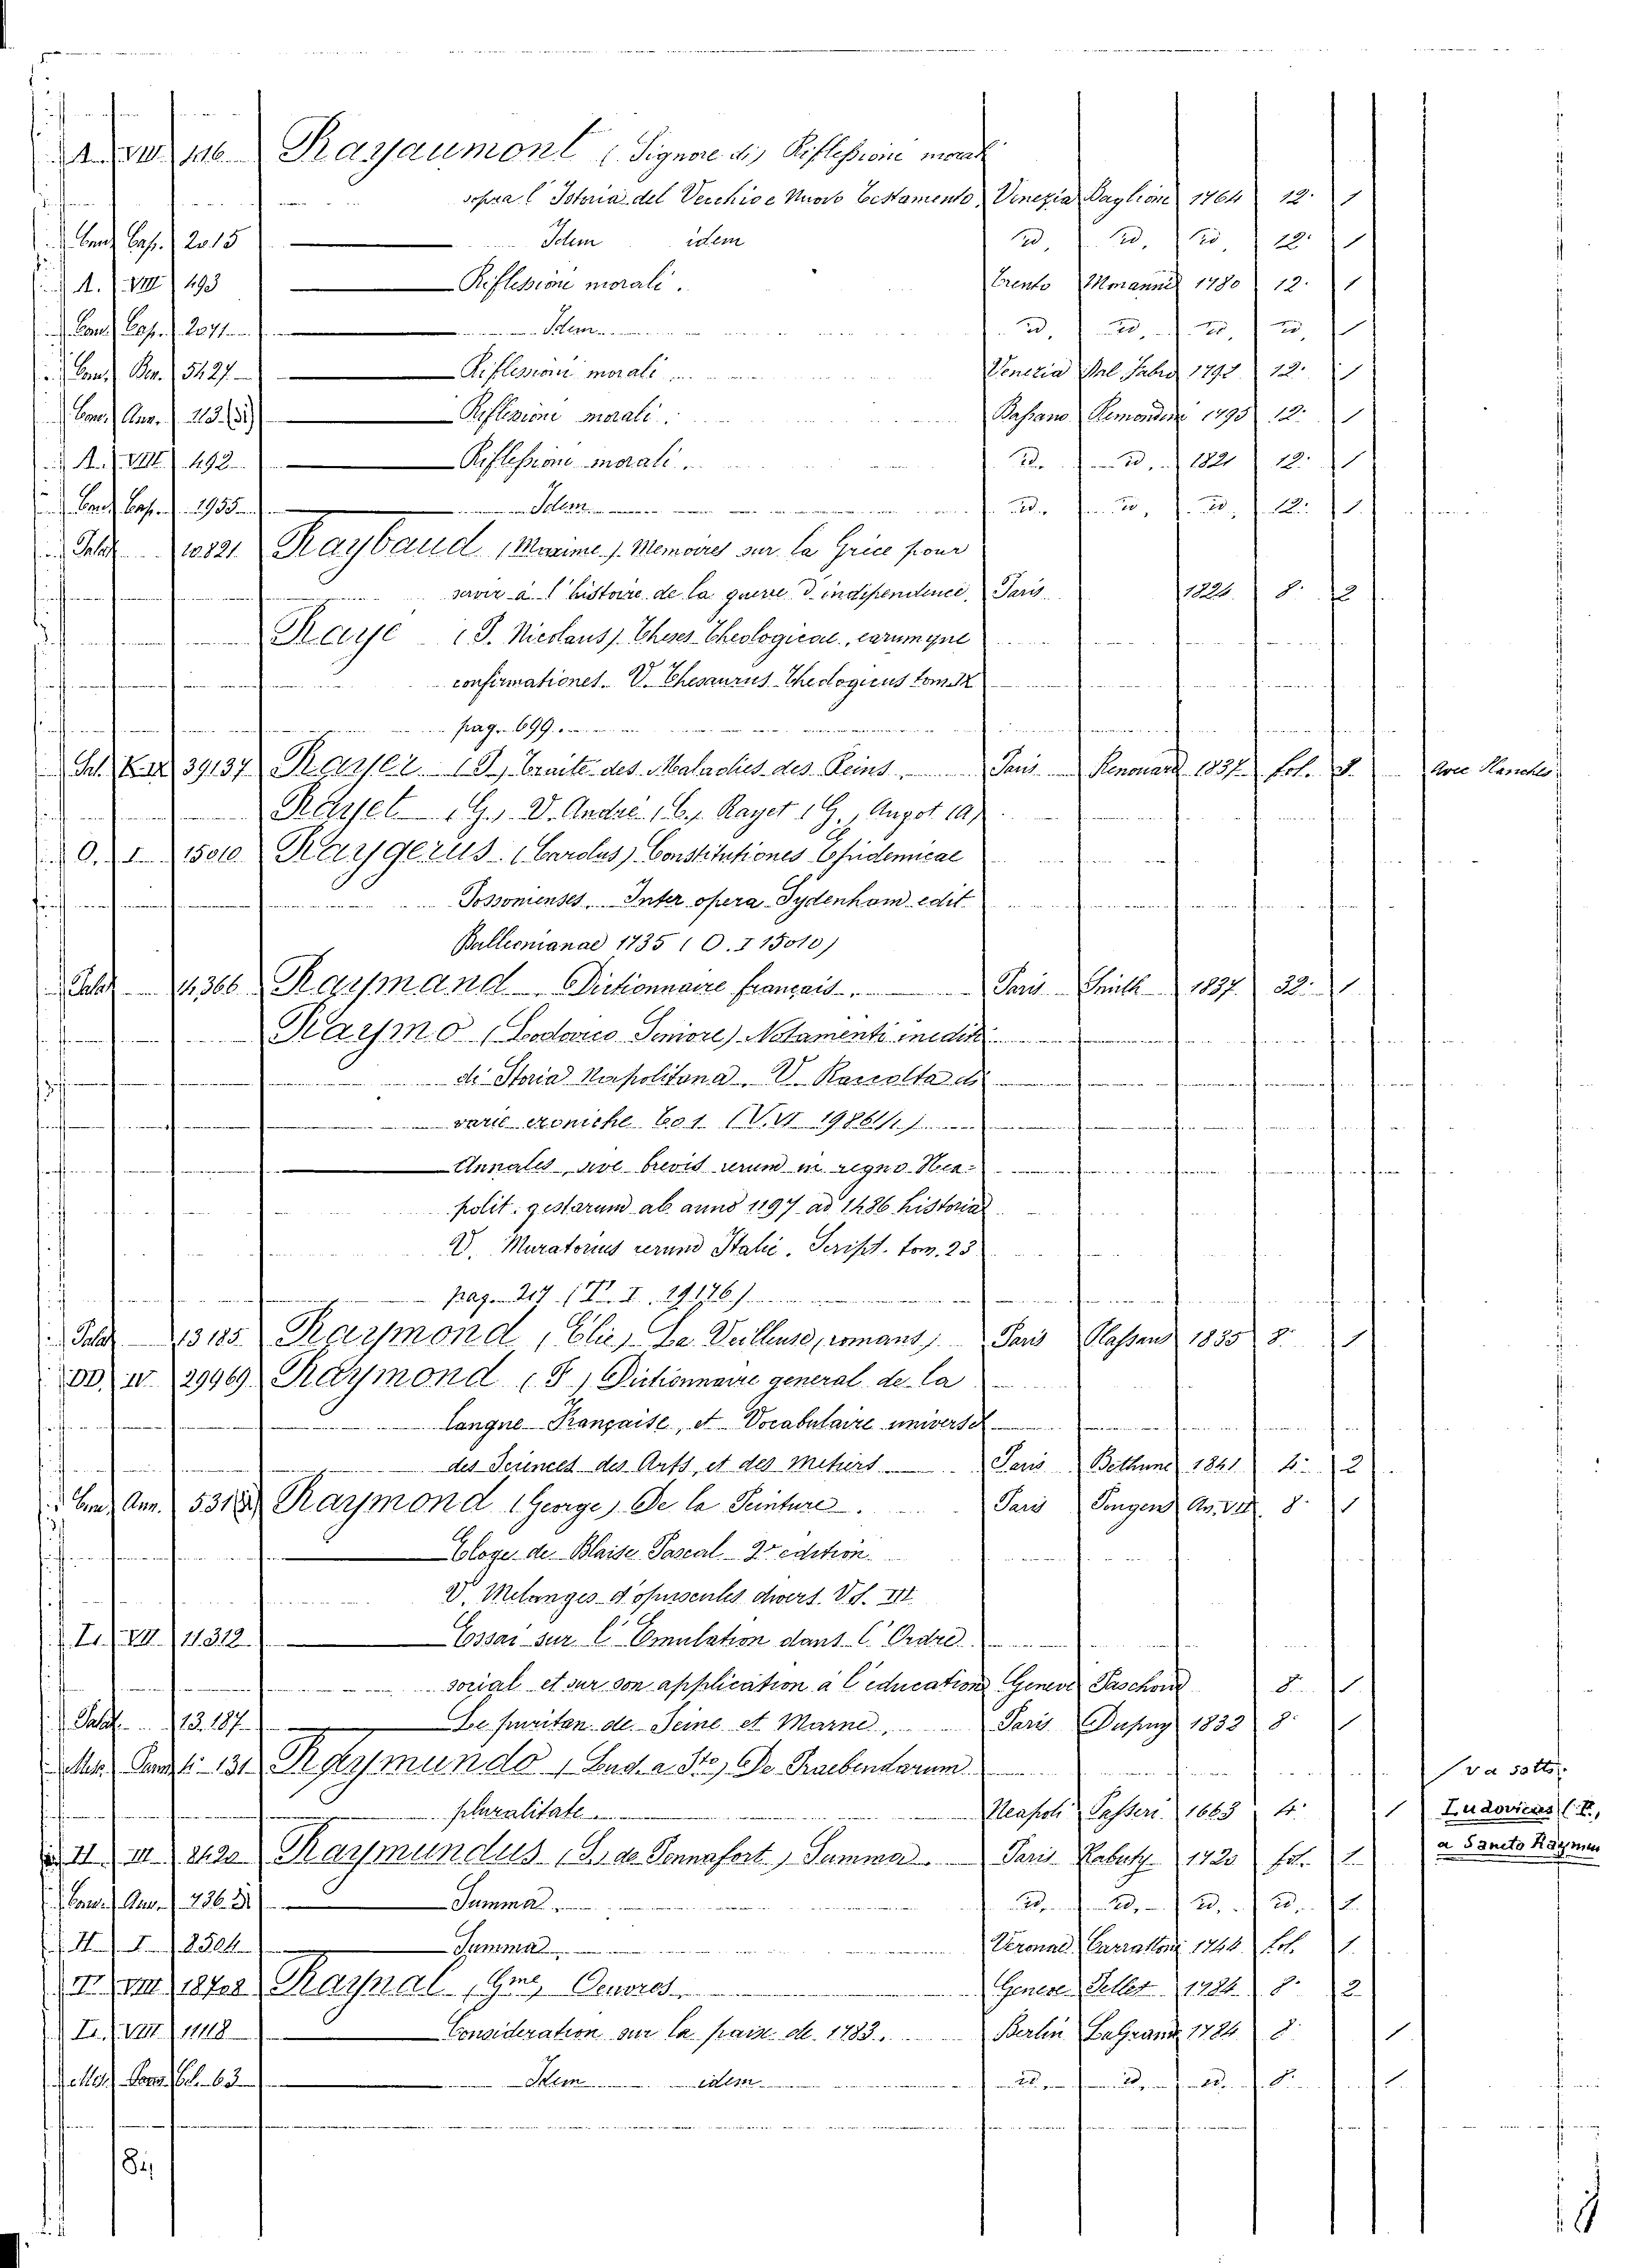 A. VIII. 116 Rayaumont (Signore di) Riflessioni morali
sopra l'Istoria del Vecchio e Nuovo Testamento Venezia Baglioni 1764 12. 1
Conv. Cap. 2015 Idem idem id, id, id, 12. 1
A. VIII 493 Riflessioni morali. Trento Monauni 1780 12. 1
Conv. Cap. 2071 Idem id, id, id, id, 1
Conv. Ber. 5427 Riflessioni morali Venezia 1792 12. 1
Conv. Ann. 213.(31) Riflessioni morali. Bassano Remondini 1795 12. 1
A. VIII 492 Riflessioni morali. Id. id. 1821 12. 1
Conv. Cap. 1955 Idem id, id, id, 12. 1
Palat. 10821 Raybaud (Maxime). Memoires sur la Grice pour
servir a l'histoire de la guerre d'independence, Paris 1824. 8. 2
Raye (J. Nicolaus). Theses Theologicae, earumque
confirmationes. V. Thesaurus Theologicus tom. IX
pag. 699.
39137 Rayer (P.) Traite des Maladies des Reins Paris Renouard 1837 fol. 1. Avec Planches
Rayet (G.). V. André (C.). Rayet (G.), Angot (A)
O. I 15010 Raygerus (Carolus). Constitutiones Epidemicae
Possonienses. Inter opera Sydenham edit
Ballionianae 1735 (O. I 15010)
Palat. 14,366 Raymand Dictionnaire français. Paris Smith 1837. 32. 1
Raymo (Lodovico Seniore) Notamenti inediti
di Storia Napolitana. V. Raccolta di
varie croniche to 1 (V. VI 19861/1.)
Annales, sive brevis rerum in regno Nea-
polit. gestarum ab anno 1197 ad 1486 historia
V. Muratorius rerum Italic. Script. tom. 23
pag. 217 (V. I. 19176)
Palat. 13185 Raymond (Elie) La Veilleuse, romans. Paris Classens 1835 8. 1
DD. IV 29969 Raymond (F.) Dictionnaire general de la
langue Française, et Vocabulaire universel
des Sciences des Arts, et des metiers Paris Bethune 1841 4. 2
Conv. Ann. 531 Raymond (George) De la Peinture. Paris Pougens An. VII 8. 1
Eloge de Blaise Pascal 2e edition.
V. Melanges d'opuscules divers. Vol. III
L. VII 11312 Essai sur l'Emulation dans l'Ordre
social et sur son application a l'education Geneve Paschoud 8. 1
Palat. 13.187 Le puritan de Seine et Marne. Paris Dupuy 1832 8. 1
Mis. 131 Raymundo (Lud. a Sto) De Praebendarum va sotto:
pluralitate. Neapoli Passeri 1663 4. 1 Ludovicus (P.,
II. III 2620 Raymundus (S. de Pennafort) Summa. Paris 1720 fol. 1 a Sancto Raymun
Conv. Ann. 736. Summa id, id, id, id, 1.
II I 2504 Summa Veronae Carrattoni 1744 fol. 1.
VIII 18708 Raynal, Gme, Oeuvres. Geneve Pellet 1784 8. 2
L. VIII 11118 Consideration sur la paix de 1783. Berlin LaGrand 1784 8 1
Mis. 63 Idem idem id, id, id, 8. 1
84